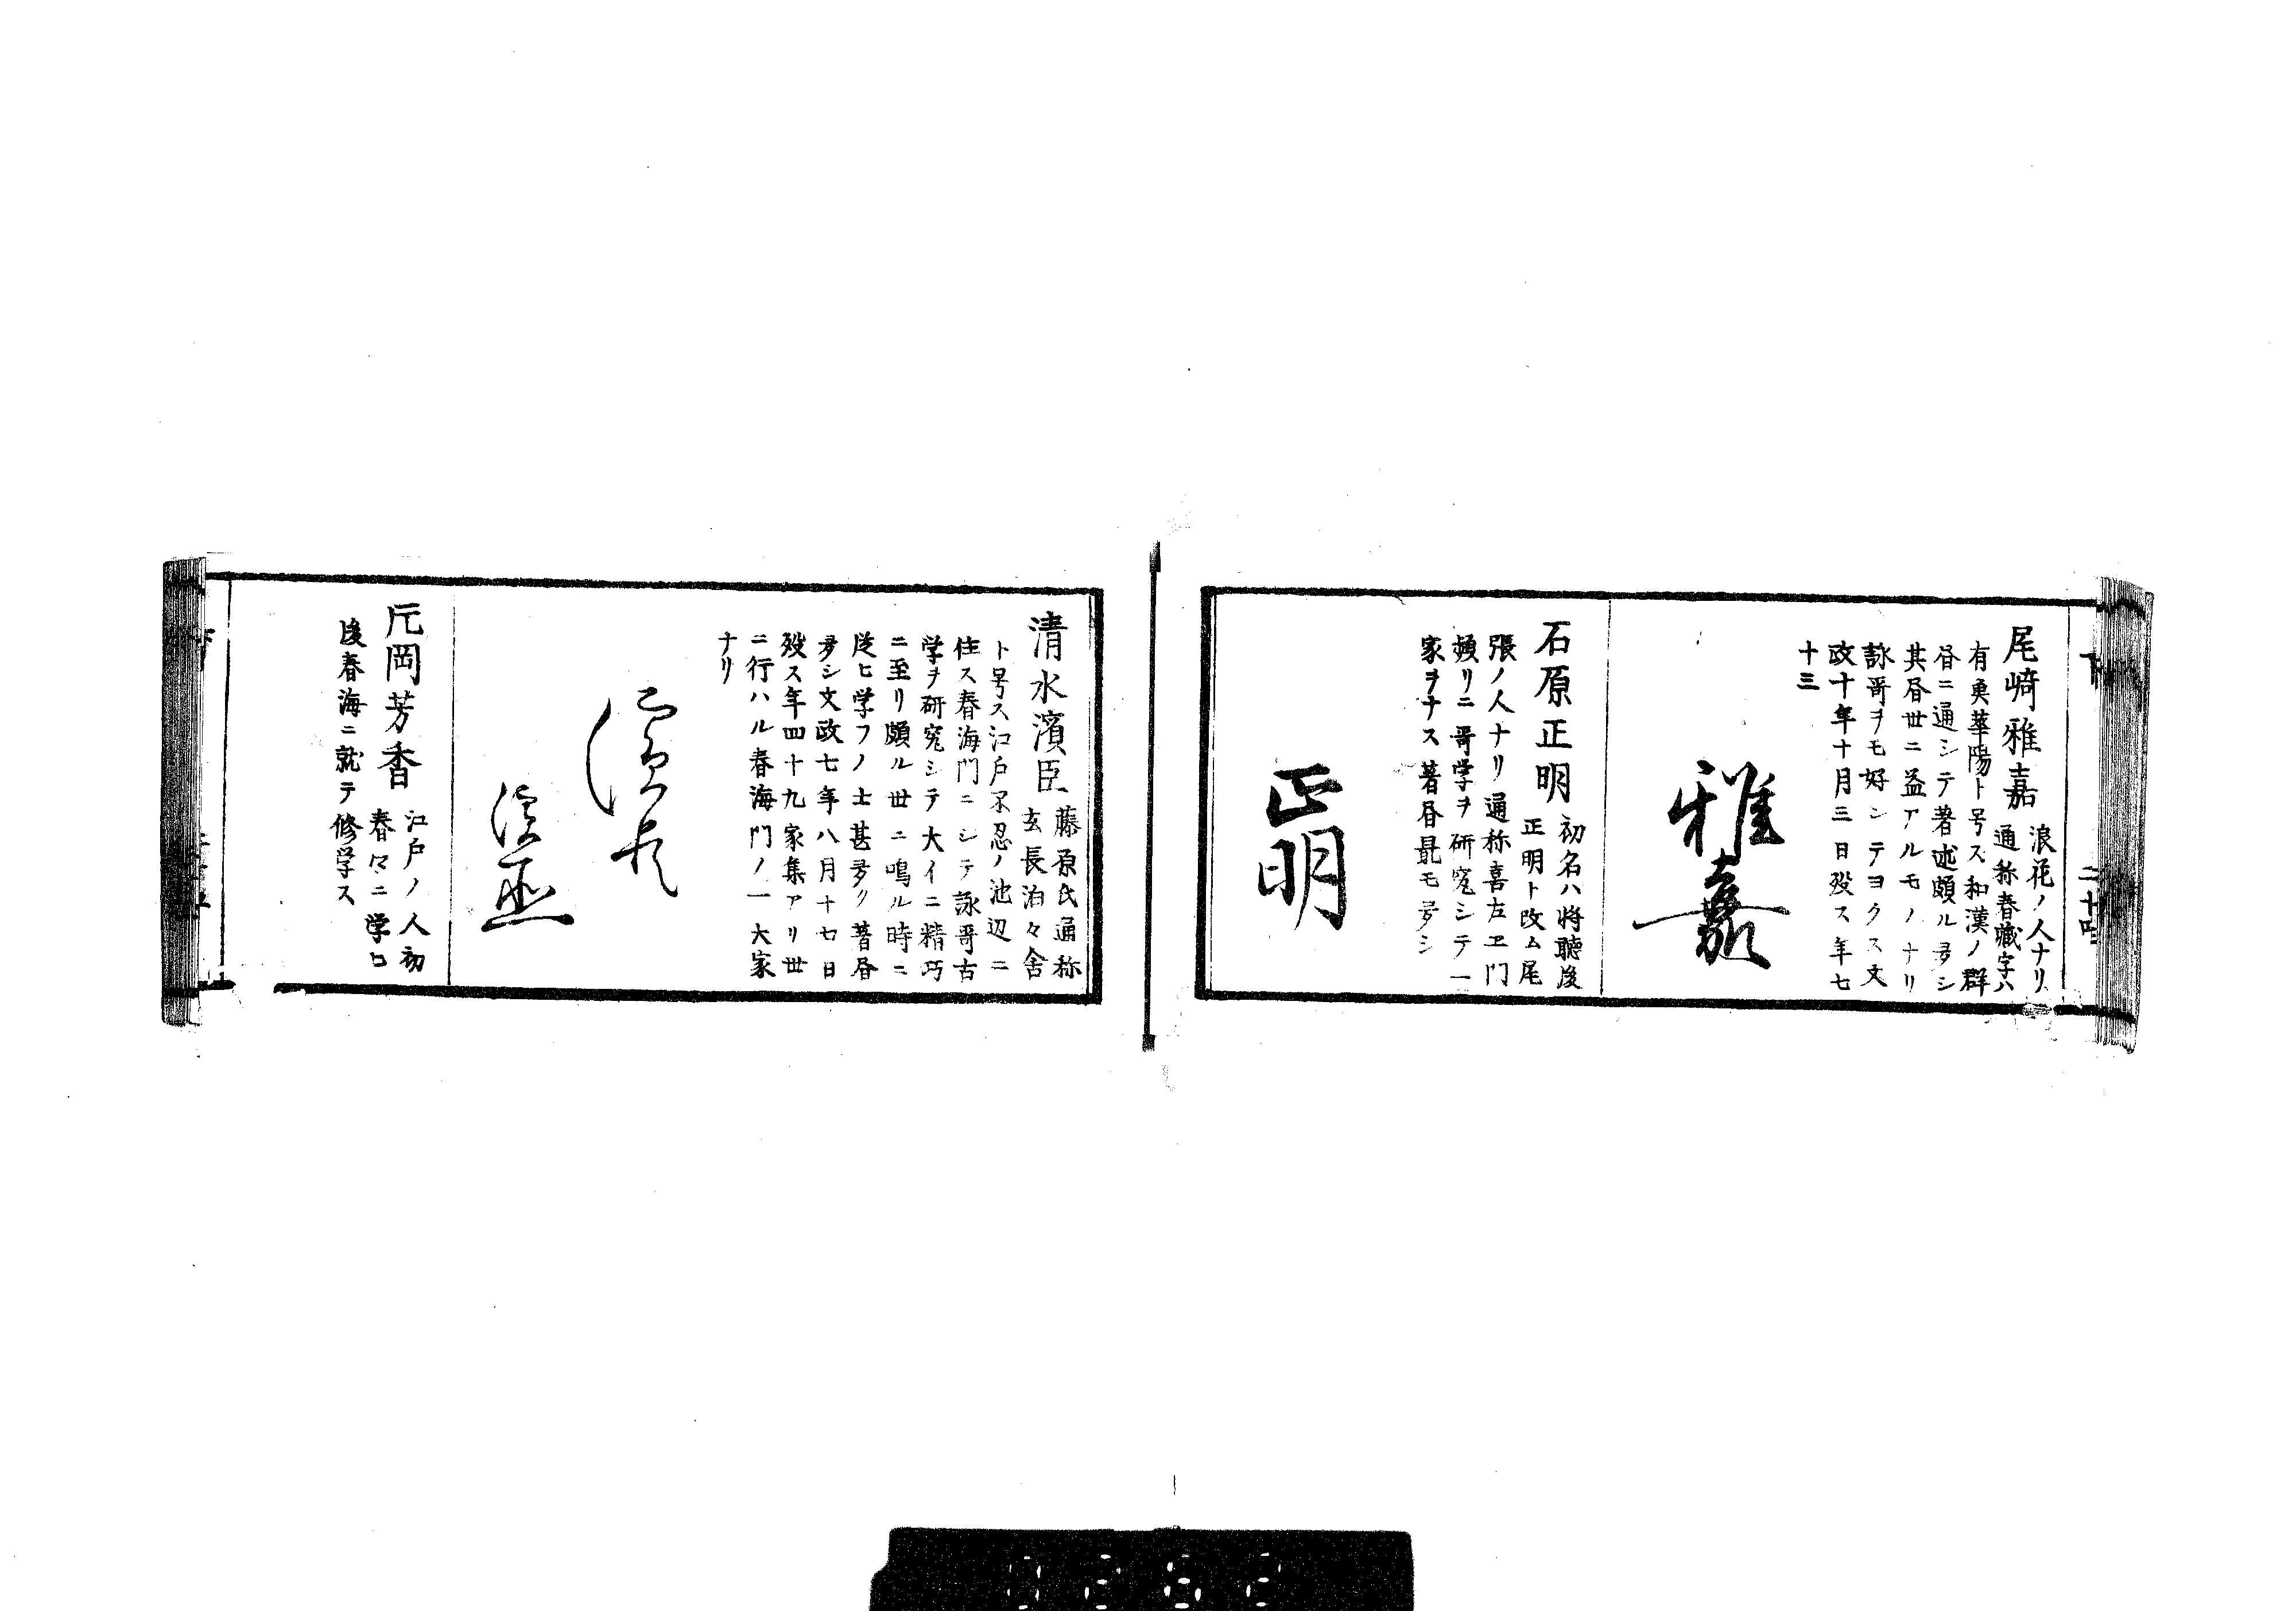 下
二十四
尾﨑雅嘉
浪花ノ人ナリ
通称春蔵字ハ
有奥華陽ト号ス和漢ノ群
昏ニ通シテ著述頗ル夛シ
其昏世ニ益アルモノナリ
詠哥ヲモ好ンテヨクス文
政十年十月三日歿ス年七
十三
雅嘉
石原正明
初名ハ将聴後
正明ト改ム尾
張ノ人ナリ通称喜左エ門
頻リニ哥学ヲ研究シテ一
家ヲナス著昏最モ夛シ
正明
清水濱臣
藤原氏通称
玄長泊々舎
ト号ス江戸不忍ノ池辺ニ
住ス春海門ニシテ詠哥古
学ヲ研究シテ大イニ精巧
ニ至リ頗ル世ニ鳴ル時ニ
従ヒ学フノ士甚夛ク著昏
夛シ文政七年八月十七日
歿ス年四十九家集アリ世
ニ行ハル春海門ノ一大家
ナリ
濱臣
濱臣
元岡芳香
江戸ノ人初
春々ニ学ヒ
後春海ニ就テ修学ス